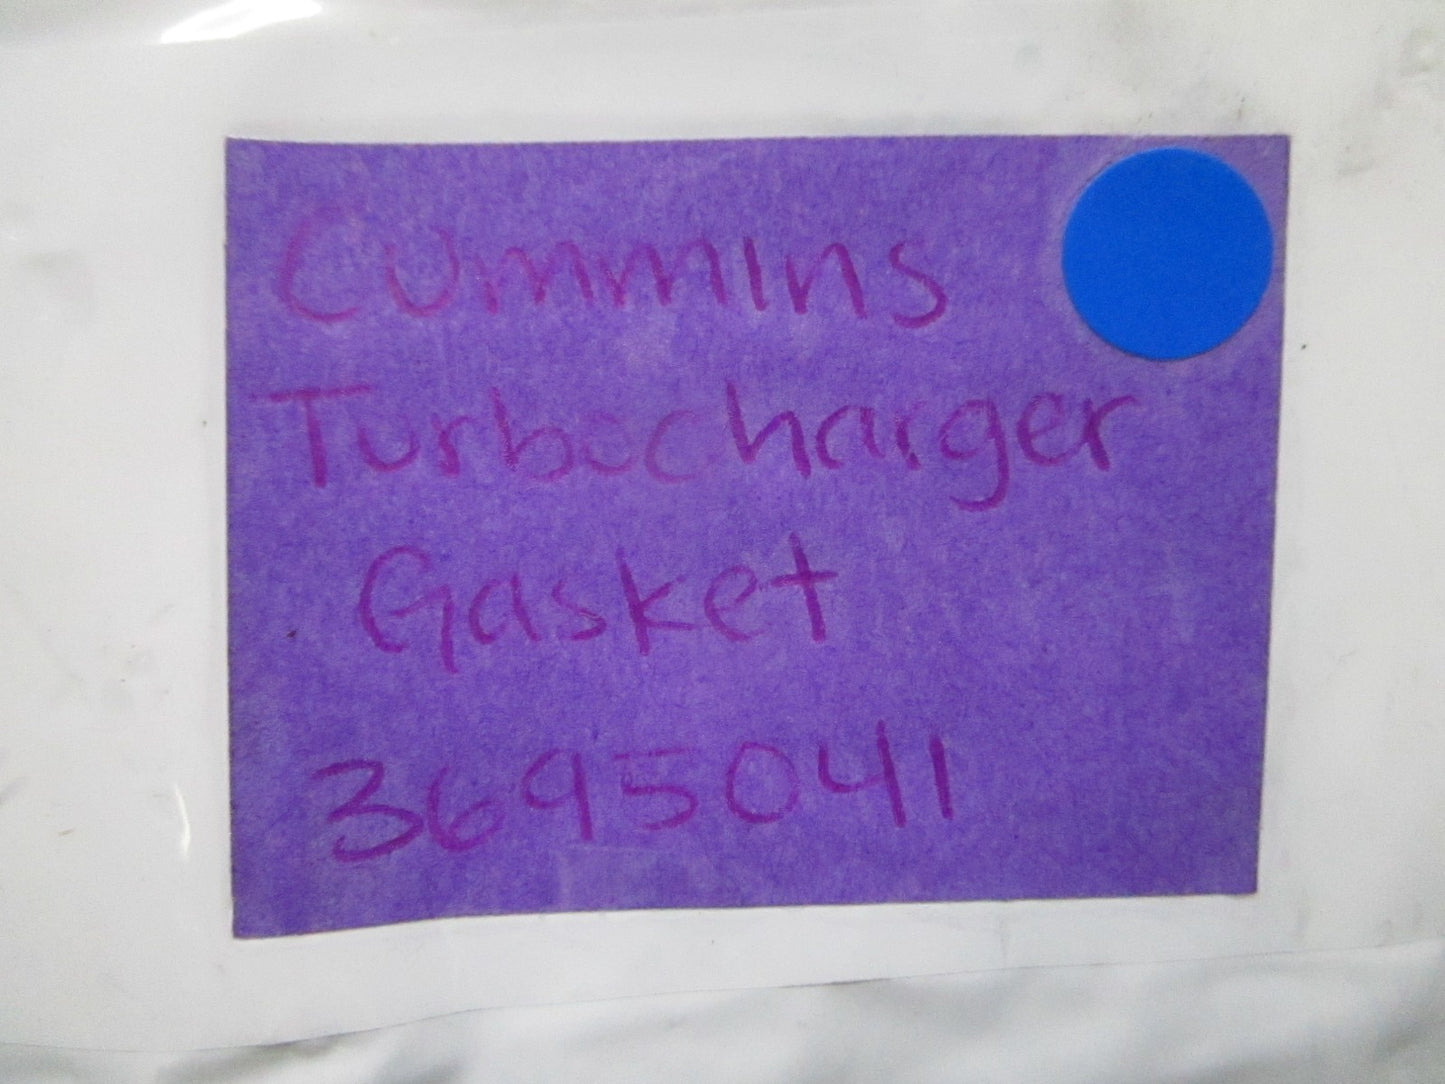 Cummins
Turbocharger
Gasket
3695041